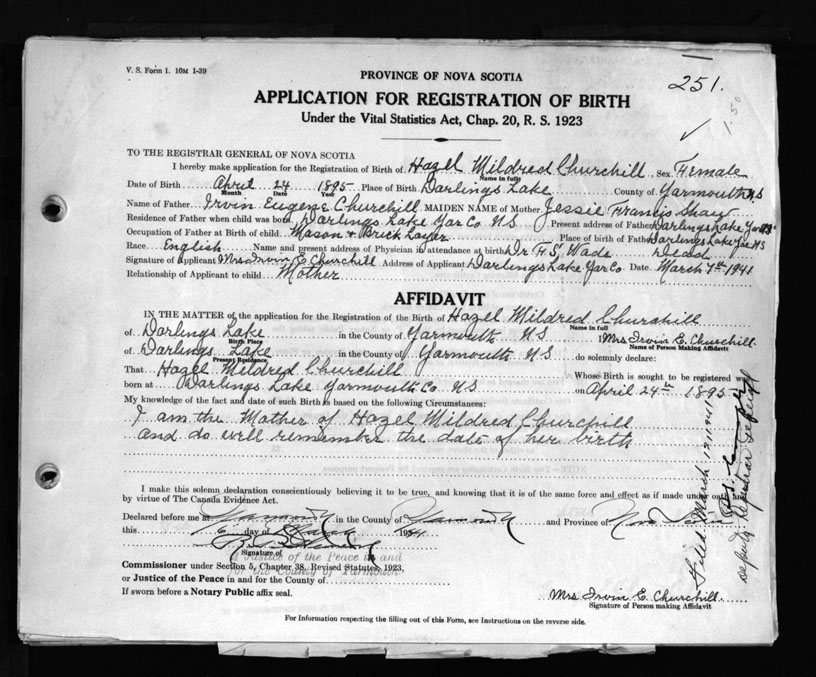 V. S. Form 1. 10M 1-39
251.
1.50
PROVINCE OF NOVA SCOTIA
APPLICATION FOR REGISTRATION OF BIRTH
Under the Vital Statistics Act, Chap. 20, R. S. 1923
TO THE REGISTRAR GENERAL OF NOVA SCOTIA
I hereby make application for the Registration of Birth of Hazel Mildred Churchill Sex Female
Name in full
Date of Birth April 24 1895 Place of Birth Darlings Lake County of Yarmouth N.S
Month Date Year
Name of Father Irvin Eugene Churchill MAIDEN NAME of Mother Jessie Francis Shaw
Residence of Father when child was born Darlings Lake Yar Co NS Present address of Father Darlings Lake Yar NS
Occupation of Father at Birth of child Mason & Brick Layer Place of birth of Father Darlings Lake Yar NS
Race English Name and present address of Physician in attendance at birth Dr H S, Wade, Dead
Signature of Applicant Mrs Irvin E Churchill Address of Applicant Darlings Lake Yar Co Date March 7th 1941
Relationship of Applicant to child Mother
AFFIDAVIT
IN THE MATTER of the application for the Registration of the Birth of Hazel Mildred Churchill
Name in full
of Darlings Lake in the County of Yarmouth NS I Mrs Irvin E. Churchill
Birth Place Name of Person Making Affidavit
of Darlings Lake in the County of Yarmouth NS do solemnly declare:
Present Residence
That Hazel Mildred Churchill Whose Birth is sought to be registered was
born at Darlings Lake Yarmouth Co NS on April 24th 1895
My knowledge of the fact and date of such Birth is based on the following Circumstances:
I am the Mother of Hazel Mildred Churchill
and do well remember the date of her birth
I make this solemn declaration conscientiously believing it to be true, and knowing that it is of the same force and effect as if made under oath and
by virtue of The Canada Evidence Act.
Declared before me at Yarmouth in the County of Yarmouth and Province of Nova Scotia
this day of March 1941
Signature of
a Justice of the Peace in and
for the County of Yarmouth
Commissioner under Section 5, Chapter 38, Revised Statutes, 1923,
or Justice of the Peace in and for the County of
If sworn before a Notary Public affix seal.
Mrs Irvin E. Churchill.
Signature of Person making Affidavit
For Information respecting the filling out of this Form, see Instructions on the reverse side.
Filed March 12 1941
Deputy Registrar